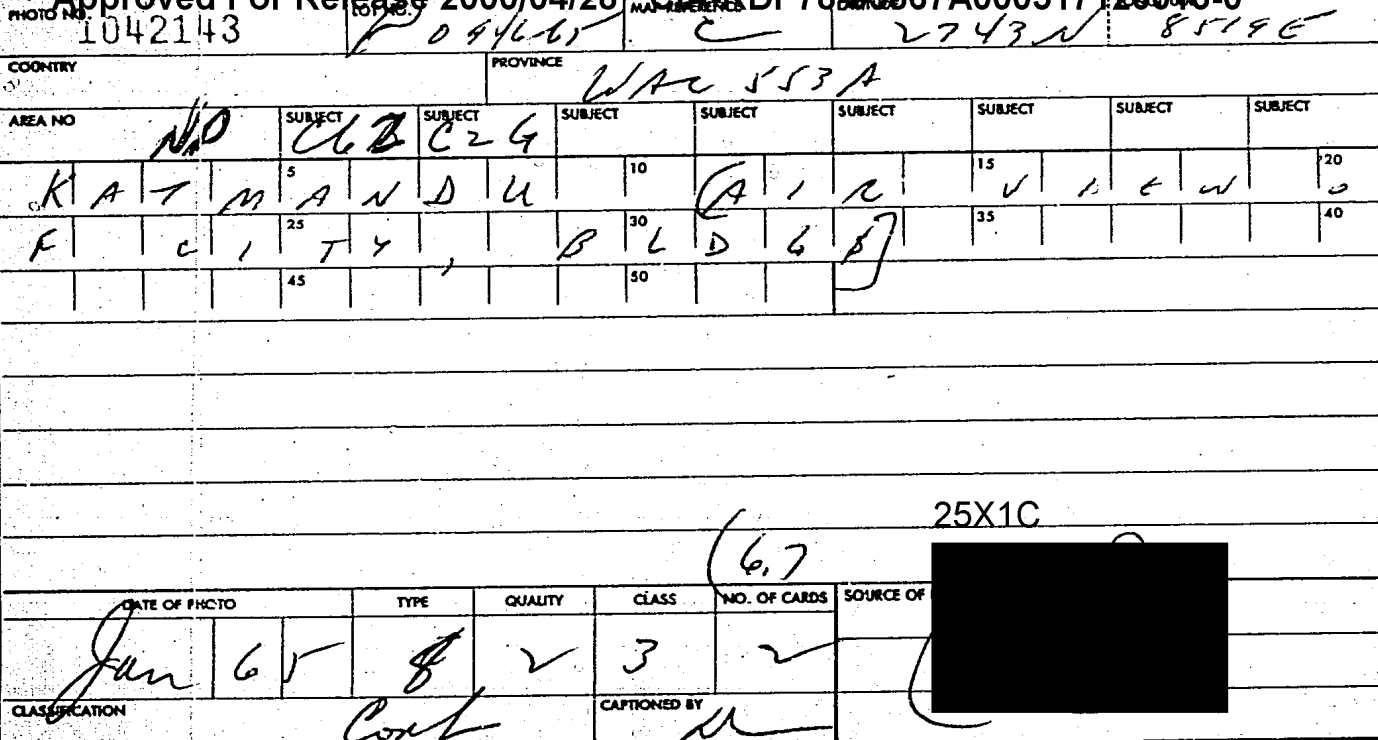 Approved For Release 2000/04/28
PHOTO NO. 1042143 LOT NO. 094665 MAP REFERENCE C 2743N 8519E
COUNTRY PROVINCE WAC 553A
AREA NO SUBJECT SUBJECT C2G SUBJECT SUBJECT SUBJECT SUBJECT SUBJECT SUBJECT
5 10 15 20
KATMANDU (AIR VIEW O
25 30 35 40
F CITY, BLDGS)
45 50
25X1C
(6,7
DATE OF PHOTO TYPE QUALITY CLASS NO. OF CARDS SOURCE OF
Jan 65 8 2 3 2
CLASSIFICATION Conf CAPTIONED BY